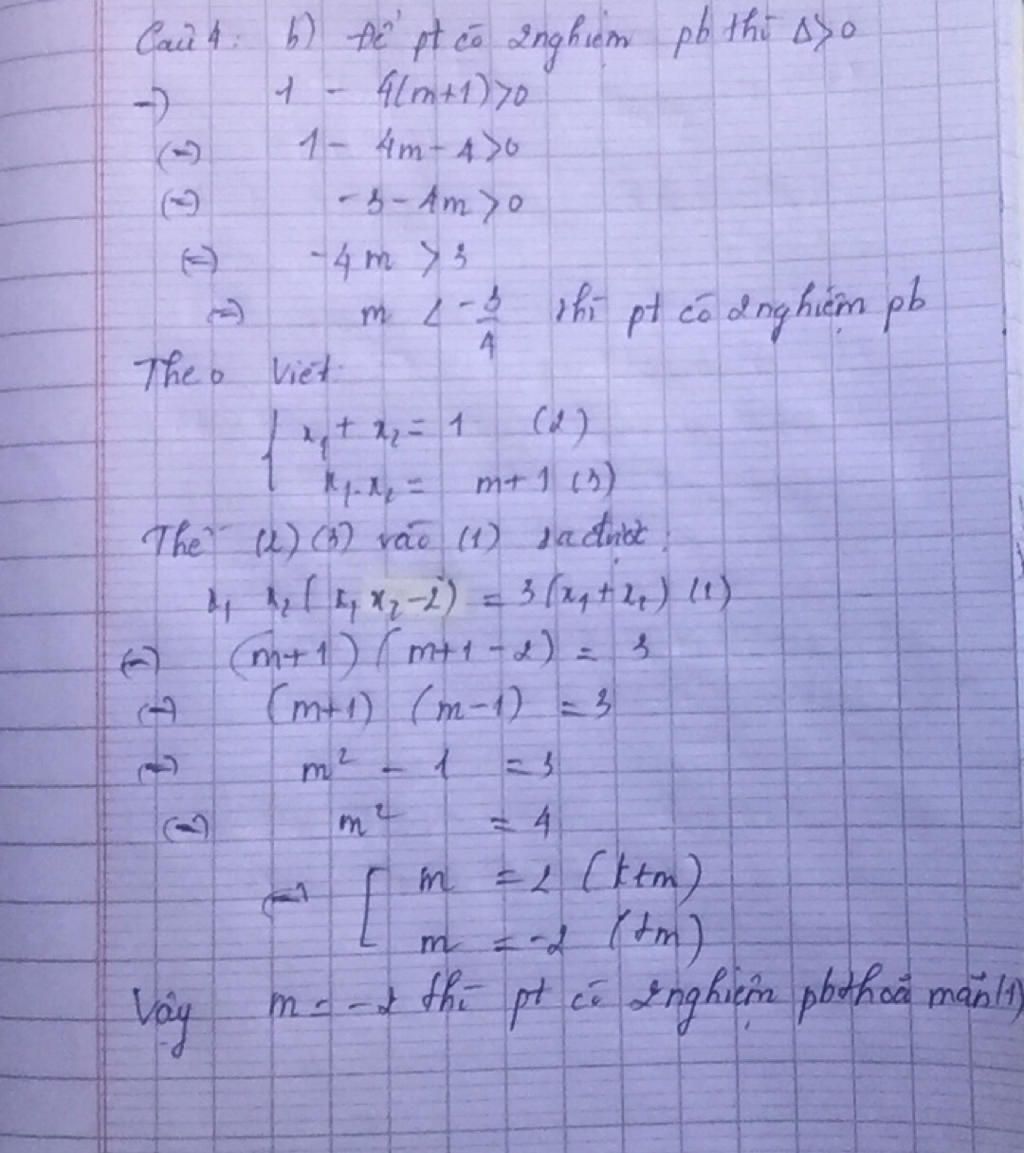 Câu 4: b) Để pt có 2 nghiệm pb thì Δ>0
=) 1 - 4(m+1)>0
(=) 1 - 4m - 4>0
(=) -3 - 4m >0
(=) -4m > 3
(=) m < -3/4 thì pt có 2 nghiệm pb
Theo Viét:
{ x₁ + x₂ = 1 (2)
x₁.x₂ = m+1 (3)
Thế (2) (3) vào (1) ta được:
x₁ x₂ ( x₁ x₂ -2) = 3 (x₁ + x₂) (1)
(=) (m+1) (m+1-2) = 3
(=) (m+1) (m-1) = 3
(=) m² - 1 = 3
(=) m² = 4
(=) [ m = 2 (ktm)
m = -2 (tm)
Vậy m = -2 thì pt có 2 nghiệm pb thoả mãn (1)